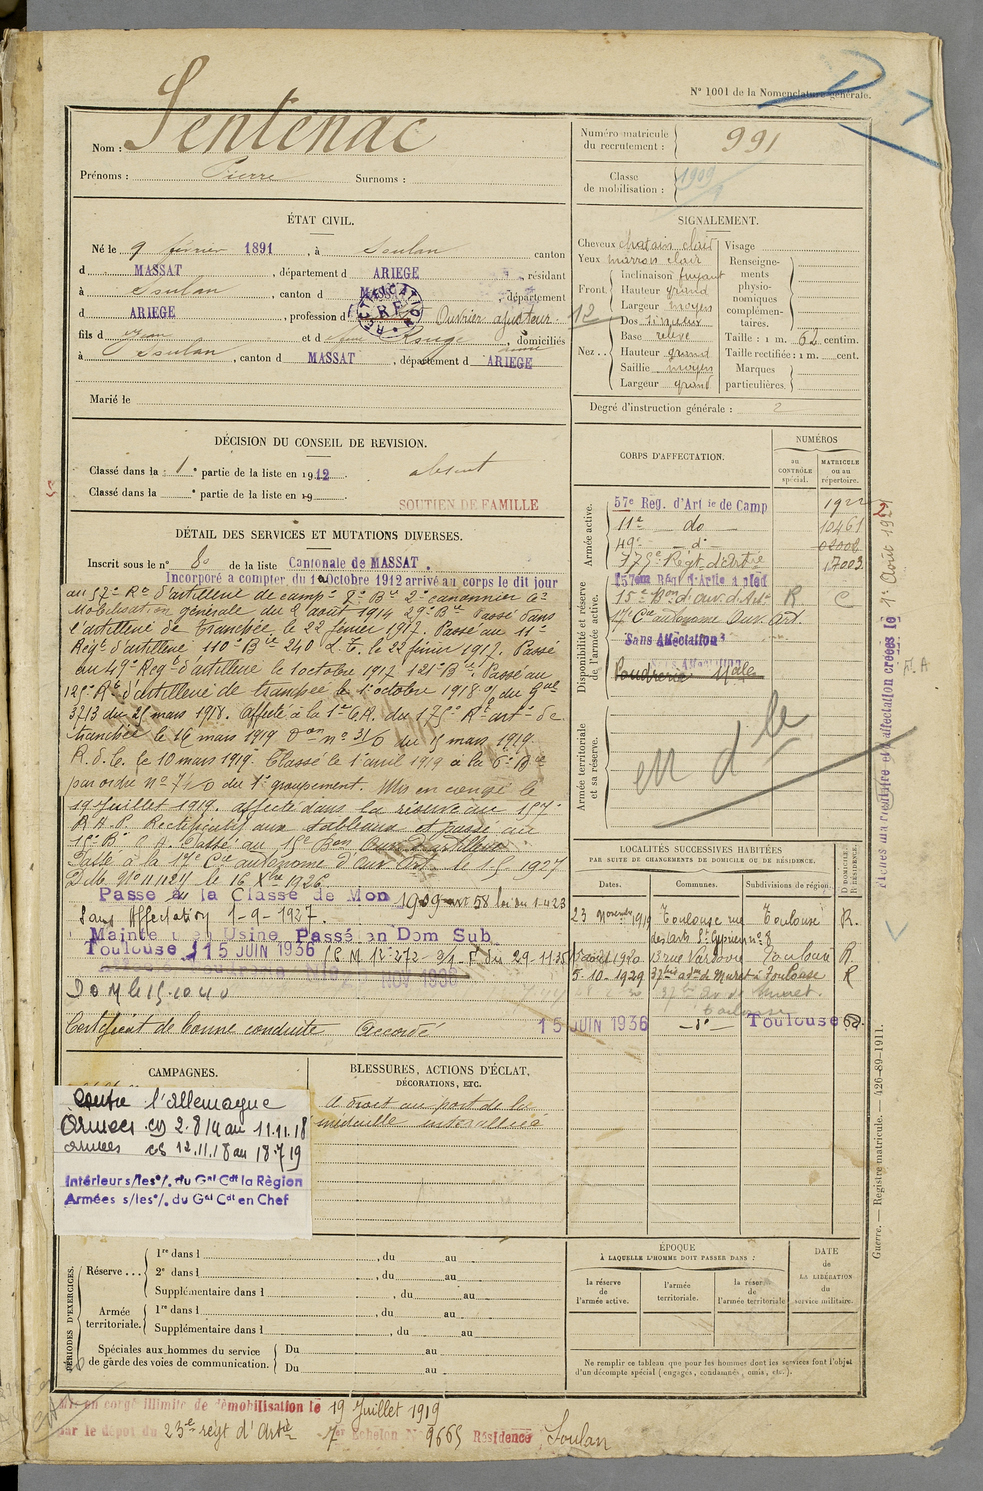 N° 1001 de la Nomenclature générale.
Nom : Sentenac
Prénoms : Pierre Surnoms :
Numéro matricule du recrutement : 991
Classe de mobilisation : 1909
ÉTAT CIVIL.
Né le 9 février 1891, à Soulan canton
d MASSAT, département d ARIEGE, résidant
à Soulan, canton d , département
d ARIEGE, profession d Ouvrier ajusteur
RECTIFICATION R.F.
12
fils d Jean et d Rouge, domiciliés
à Soulan, canton d MASSAT, département d ARIEGE
Marié le
SIGNALEMENT.
Cheveux chatain clair
Yeux marron clair
Front. Inclinaison fuyant
Hauteur grand
Largeur moyen
Nez .. Dos sinueux
Base relevé
Hauteur grand
Saillie moyen
Largeur grand
Visage
Renseignements physionomiques complémentaires.
Taille : 1 m. 62 centim.
Taille rectifiée : 1 m. cent.
Marques particulières.
Degré d'instruction générale : 2
DÉCISION DU CONSEIL DE REVISION.
Classé dans la 1e partie de la liste en 1912 absent
Classé dans la e partie de la liste en 19
SOUTIEN DE FAMILLE
DÉTAIL DES SERVICES ET MUTATIONS DIVERSES.
Inscrit sous le n° 80 de la liste Cantonale de MASSAT.
Incorporé a compter du 10 Octobre 1912 arrivé au corps le dit jour
au 57e Rt d'artillerie de campe 2e canonnier
Mobilisation générale du 2 août 1914 29e Bie Passé dans
l'artillerie de tranchée le 22 février 1917. Passé au 11e
Régt d'artillerie 110e Bie 240 L.T. le 22 février 1917. Passé
au 49e Regt d'artillerie le 1 octobre 1917 121e Bie Passé au
125e Rt d'artillerie de tranchée le 1e octobre 1918 du Gal
3713 du 25 mars 1918. Affecté à la 1re du 175e Rt art. de
tranchée le 16 mars 1919 on n° 31/0 du 15 mars 1919.
R.d.C. le 10 mars 1919. Classé le 1 avril 1919 à la 6e Bie
par ordre n° 71/0 du 1e groupement. Mis en congé le
19 Juillet 1919. affecté dans la réserve au 157e
R.A.P. Rectificatif aux tableaux et passé au
15e B. O.A. Classé au 15e Bon Ouv. d'Artillerie
Passé à la 17e Cie autonome d'Ouv. Art. le 1.5.1927
D.M. N° 11 11274 le 16 Xbre 1926
Passé à la Classe de Mon 1909 art 58 loi du 1.4.23
Sans Affectation 1-9-1927.
Passé en Dom Sub
Toulouse 15 JUIN 1936
NOV 1936
D O M le 15.10.40
Certificat de bonne conduite Accordé
CORPS D'AFFECTATION.
NUMÉROS
au CONTRÔLE spécial.
MATRICULE ou au répertoire.
Armée active.
57e Rég. d'Art ie de Camp 1922
11e do 10461
49e d° 02002
175e Régt d'artie 17003
Disponibilité et réserve de l'armée active.
157ème Régt d'Artie à pied
15e Bon d'ouv. d'Art. R C
17e Cie autonome Ouv. Art.
Sans Affectation
Poudrerie
Armée territoriale et sa réserve.
LOCALITÉS SUCCESSIVES HABITÉES
PAR SUITE DE CHANGEMENTS DE DOMICILE OU DE RÉSIDENCE.
Dates. Communes. Subdivisions de région. D. DOMICILE. R. RÉSIDENCE.
23 Novembre 1919 Toulouse rue des arts St Cyprien n° 8 Toulouse R.
août 1920 rue Toulouse R
5-10-1929 37 de Muret à Toulouse R
37 av de Muret. Toulouse
15 JUIN 1936 d° Toulouse
CAMPAGNES.
Contre l'allemagne
Armées du 2.8.14 au 11.11.18
armées 12.11.18 au 18.7.19
Intérieur s/les °/. du Gal Cdt la Règion
Armées s/les °/. du Gal Cdt en Chef
BLESSURES, ACTIONS D'ÉCLAT, DÉCORATIONS, ETC.
A droit au port de la
médaille interalliée
PÉRIODES D'EXERCICES.
Réserve ... 1re dans l , du au
2e dans l , du au
Supplémentaire dans l , du au
Armée territoriale. 1re dans l , du au
Supplémentaire dans l , du au
Spéciales aux hommes du service de garde des voies de communication. Du au
Du au
ÉPOQUE
À LAQUELLE L'HOMME DOIT PASSER DANS :
la réserve de l'armée active.
l'armée territoriale.
la réserve de l'armée territoriale
DATE de LA LIBÉRATION du service militaire.
Ne remplir ce tableau que pour les hommes dont les services font l'objet d'un décompte spécial (engagés, condamnés, omis, etc.).
Guerre. — Registre matricule. — 426-89-1911.
en congé illimité de démobilisation le 19 Juillet 1919
par le dépot du 23e régt d'Artie 7er Echelon N° 9665 Résidence Soulan